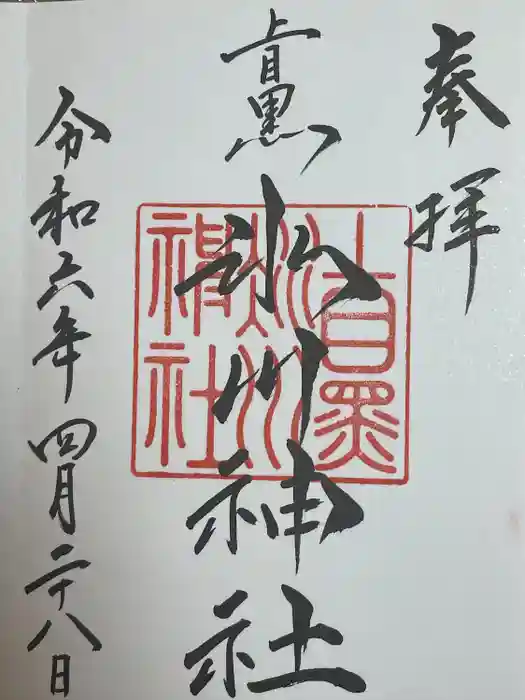 奉拝
上目黒
氷川神社
上目黒氷川神社
令和六年四月二十八日